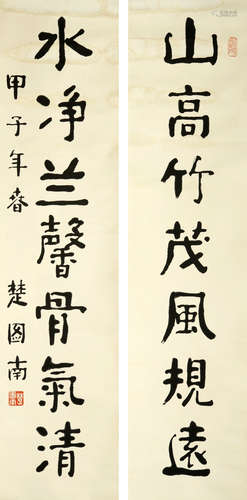 山高竹茂風規遠
水净兰馨骨氣清
甲子年春 楚图南